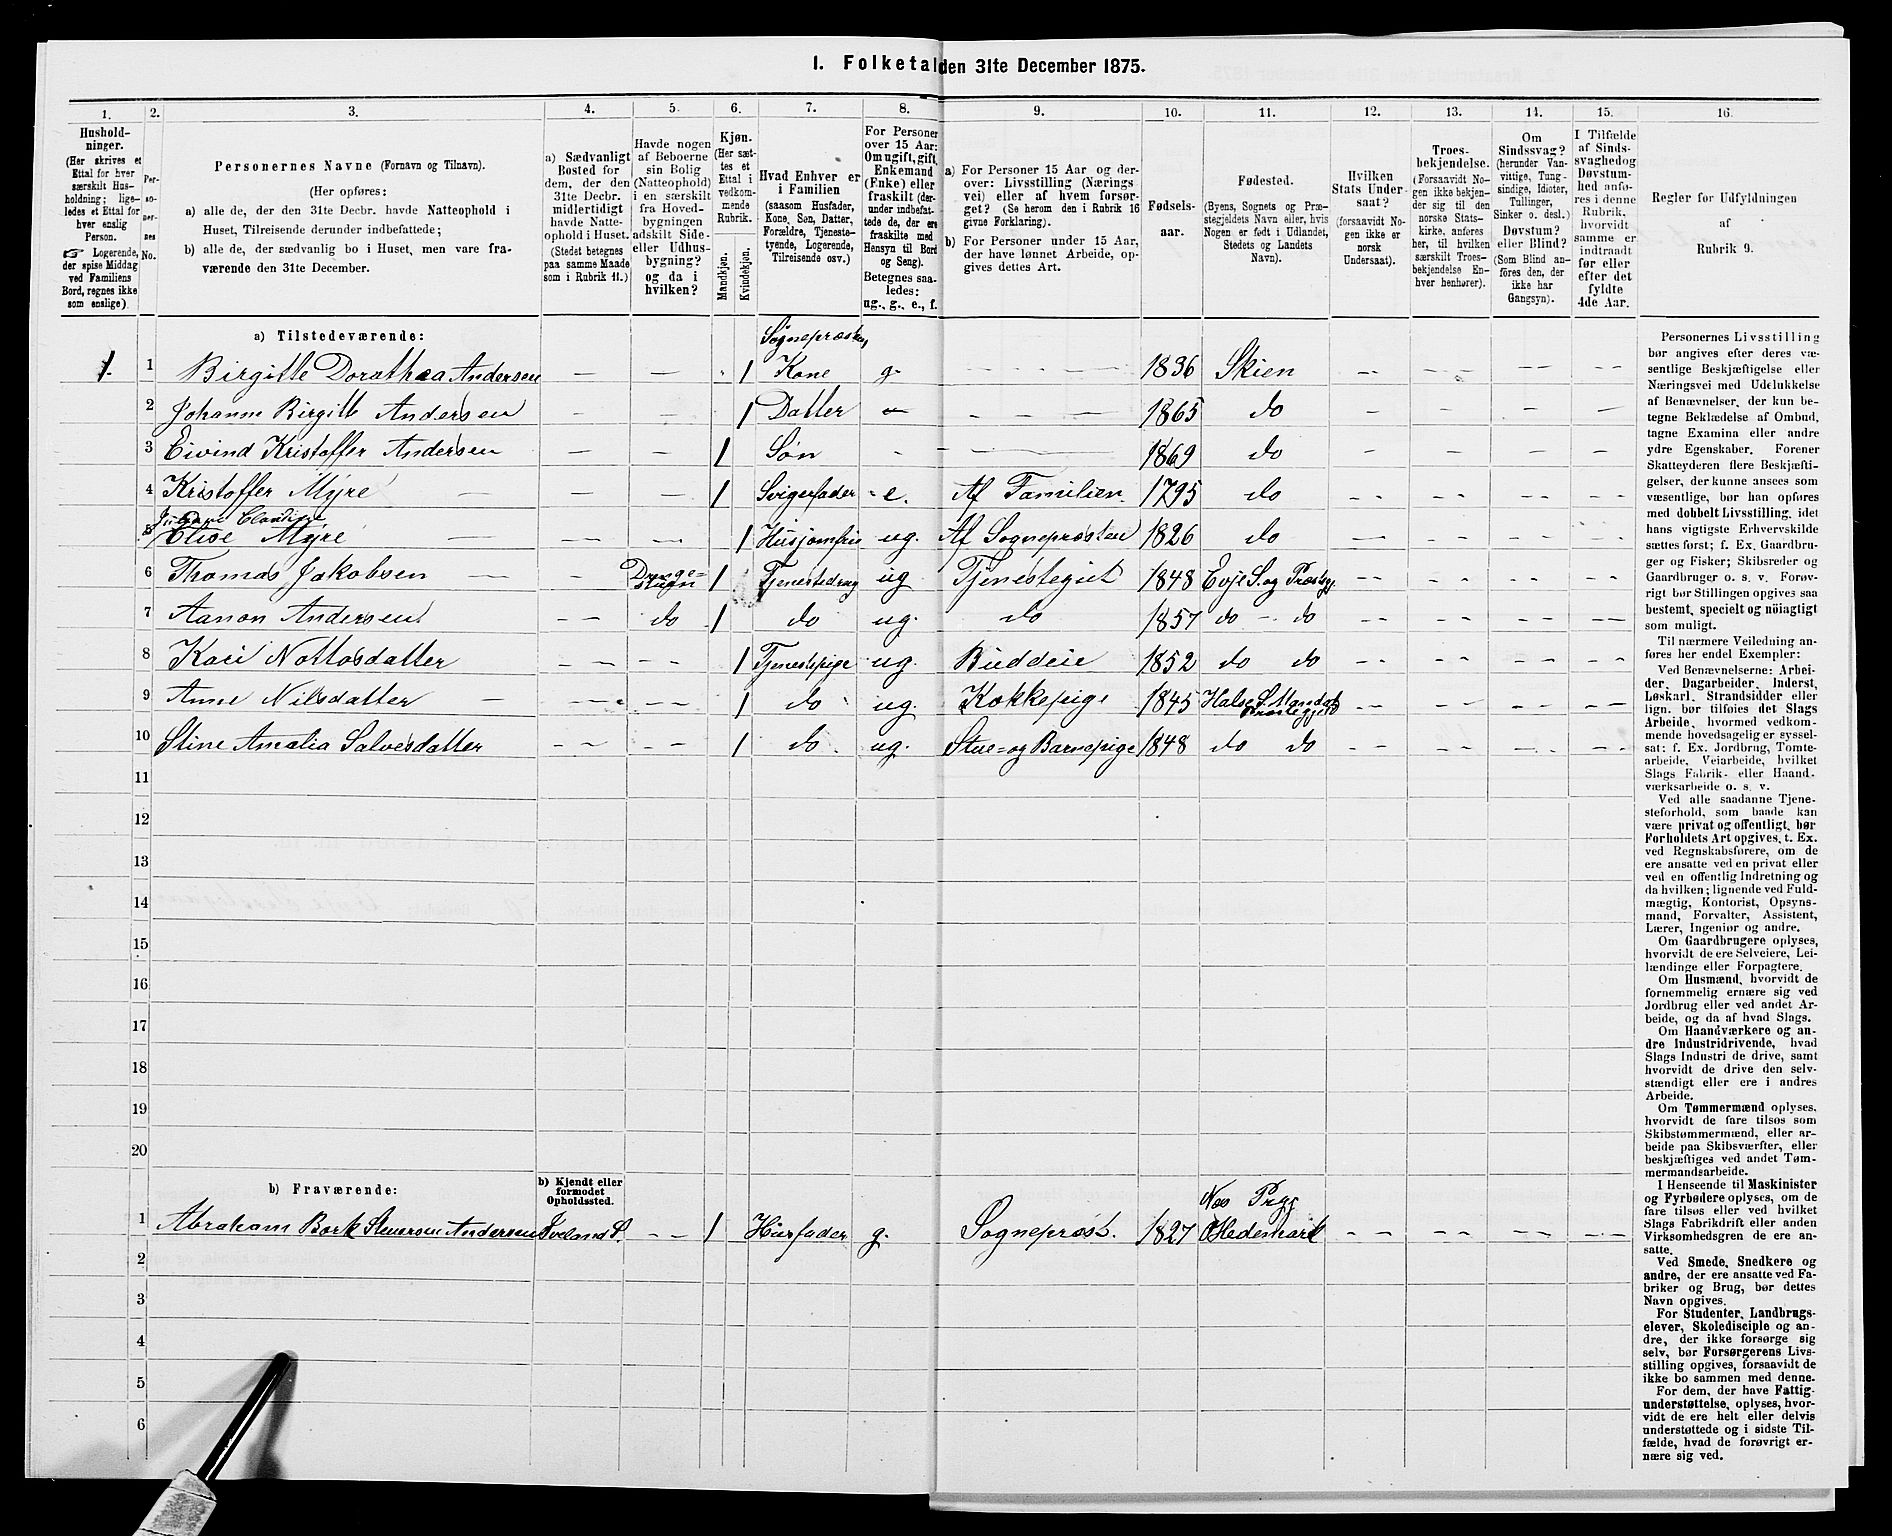 1. Folketal den 31te December 1875.
1. 2. 3. 4. 5. 6. 7. 8. 9. 10. 11. 12. 13. 14. 15. 16.
Hushold-
ninger.
(Her skrives et
Ettal for hver
særskilt Hus-
holdning; lige-
ledes et Ettal for
hver enslig
Person.
☞ Logerende,
der spise Middag
ved Familiens
Bord, regnes ikke
som enslige).
Per-
so-
ner-
nes
No.
Personernes Navne (Fornavn og Tilnavn).
(Her opføres:
a) alle de, der den 31te Decbr. havde Natteophold i
Huset, Tilreisende derunder indbefattede;
b) alle de, der sædvanlig bo i Huset, men vare fra-
værende den 31te December.
a) Sædvanligt
Bosted for
dem, der den
31te Decbr.
midlertidigt
havde Natte-
ophold i Huset.
(Stedet betegnes
paa samme Maade
som i Rubrik 11.)
Havde nogen
af Beboerne
sin Bolig
(Natteophold)
i en særskilt
fra Hoved-
bygningen
adskilt Side-
eller Udhus-
bygning?
og da i
hvilken?
Kjøn.
(Her sæt-
tes et
Ettal i
vedkom-
mende
Rubrik.
Mandkjøn.
Kvindekjøn.
Hvad Enhver er
i Familien
(saasom Husfader,
Kone, Søn, Datter,
Forældre, Tjeneste-
tyende, Logerende,
Tilreisende osv.)
For Personer
over 15 Aar:
Om ugift, gift,
Enkemand
(Enke) eller
fraskilt (der-
under indbefat-
tede de, der ere
fraskilte med
Hensyn til Bord
og Seng).
Betegnes saa-
ledes:
ug., g., e., f.
a) For Personer 15 Aar og der-
over: Livsstilling (Nærings-
vei) eller af hvem forsør-
get? (Se herom den i Rubrik 16
givne Forklaring).
b) For Personer under 15 Aar,
der have lønnet Arbeide, op-
gives dettes Art.
Fødsels-
aar.
Fødested.
(Byens, Sognets og Præ-
stegjeldets Navn eller, hvis
Nogen er født i Udlandet,
Stedets og Landets
Navn).
Hvilken
Stats Under-
saat?
(forsaavidt No-
gen ikke er
norsk
Undersaat).
Troes-
bekjendelse.
(Forsaavidt No-
gen ikke bekjen-
der sig til den
norske Stats-
kirke, anføres
her, til hvilken
særskilt Troes-
bekjendelse En-
hver henhører).
Om
Sindssvag?
(herunder Van-
vittige, Tung-
sindige, Idioter,
Tullinger,
Sinker o. desl.)
Døvstum?
eller Blind?
(Som Blind an-
føres den, der
ikke har
Gangsyn).
I Tilfælde
af Sinds-
svaghed og
Døvstum-
hed anfø-
res i denne
Rubrik,
hvorvidt
samme er
indtraadt
før eller
efter det
fyldte
4de Aar.
Regler for Udfyldningen
af
Rubrik 9.
a) Tilstedeværende:
1. 1 Birgitte Dorathea Andersen — — 1 Sognepræstens Kone g. 1836 Skien
2 Johanne Birgitte Andersen — — 1 Datter — 1865 do
3 Eivind Kristoffer Andersen — — 1 Søn 1869 do
4 Kristoffer Myre — — 1 Svigerfader e. Af Familien 1795 do
5 Elise Myre — — 1 Husjomfru ug. Af Sognepræsten 1826 do
6 Thomas Jakobsen — Drenge-stuen 1 Tjenestedreng ug Tjenestegut 1848 Evje S. og Præstegj.
7 Aanon Andersen — do 1 do ug. do 1857 do - do
8 Kari Nottosdatter — — 1 Tjenestepige ug. Budeie 1852 do do
9 Anne Nilsdatter — — 1 do ug. Kokkepige 1845 Halse S. Mandal Præstegjeld
10 Stine Amalia Salvesdatter — — 1 do ug. Stue- og Barnepige 1848 do do
11
12
13
14
15
16
17
18
19
20
b) Fraværende:
b) Kjendt eller
formodet
Opholdssted.
1 Abraham Bork Andersen Iveland S. — 1 Husfader g. Sognepræst. 1827 Næs Prgj Hedemark
2
3
4
5
6
Personernes Livsstilling
bør angives efter deres væ-
sentlige Beskjæftigelse eller
Næringsvei med Udelukkelse
af Benævnelser, der kun be-
tegne Beklædelse af Ombud,
tagne Examina eller andre
ydre Egenskaber. Forener
Skatteyderen flere Beskjæfti-
gelser, der kunne ansees som
væsentlige, bør han opføres
med dobbelt Livsstilling, idet
hans vigtigste Erhvervskilde
sættes først; f. Ex. Gaardbru-
ger og Fisker; Skibsreder og
Gaardbruger o. s. v. Forøv-
rigt bør Stillingen opgives saa
bestemt, specielt og nøiagtigt
som muligt.
Til nærmere Veiledning an-
føres her endel Exempler:
Ved Benævnelserne: Arbei-
der, Dagarbeider, Inderst,
Løskarl, Strandsidder eller
lign. bør tilføies det Slags
Arbeide, hvormed vedkom-
mende hovedsagelig er syssel-
sat: f. Ex. Jordbrug, Tomte-
arbeide, Veiarbeide, hvilket
Slags Fabrik- eller Haand-
værksarbeide o. s. v.
Ved alle saadanne Tjene-
steforhold, som baade kan
være privat og offentligt, bør
Forholdets Art opgives, t. Ex.
ved Regnskabsførere, om de
ere ansatte ved en privat eller
ved en offentlig Indretning og
da hvilken; lignende ved Fuld-
mægtig, Kontorist, Opsyns-
mand, Forvalter, Assistent,
Lærer, Ingeniør og andre.
Om Gaardbrugere oplyses,
hvorvidt de ere Selveiere, Lei-
lændinge eller Forpagtere.
Om Husmænd, hvorvidt de
fornemmelig ernære sig ved
Jordbrug eller ved andet Ar-
beide, og da af hvad Slags.
Om Haandværkere og an-
dre Industridrivende, hvad
Slags Industri de drive, samt
hvorvidt de drive den selv-
stændigt eller ere i andres
Arbeide.
Om Tømmermænd oplyses,
hvorvidt de fare tilsøs som
Skibstømmermænd, eller ar-
beide paa Skibsværfter, eller
beskjæftiges ved andet Tøm-
mermandsarbeide.
I Henseende til Maskinister
og Fyrbødere oplyses, om de
fare tilsøs eller ved hvilket
Slags Fabrikdrift eller anden
Virksomhedsgren de ere an-
satte.
Ved Smede, Snedkere og
andre, der ere ansatte ved Fa-
briker og Brug, bør dettes
Navn opgives.
For Studenter, Landbrugs-
elever, Skoledisciple og an-
dre, der ikke forsørge sig
selv, bør Forsørgerens Livs-
stilling opgives, forsaavidt de
ikke bo sammen med denne.
For dem, der have Fattig-
understøttelse, oplyses, hvor-
vidt de ere helt eller delvis
understøttede og i sidste Til-
fælde, hvad de forøvrigt er-
nære sig ved.